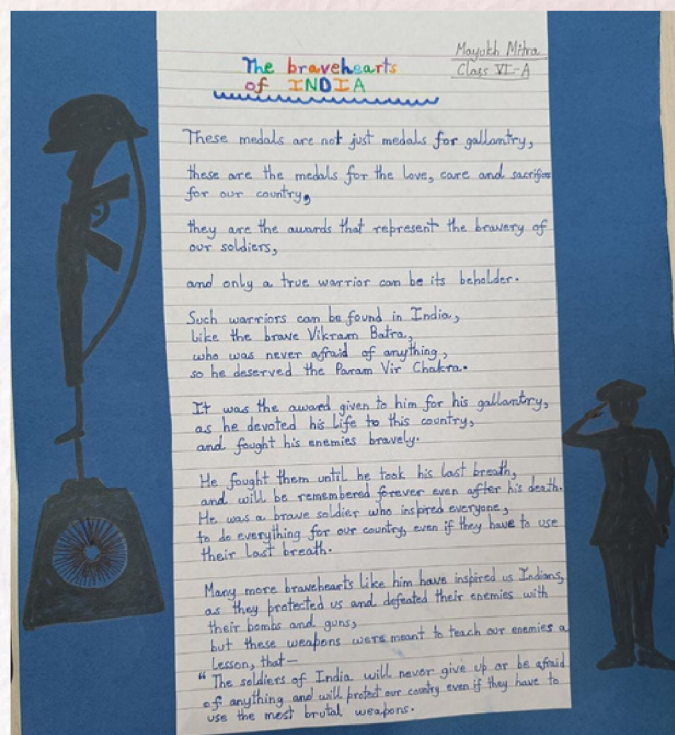 Mayukh Mitra
Class VI-A
The bravehearts
of INDIA
These medals are not just medals for gallantry,
these are the medals for the love, care and sacrifice
for our country,
they are the awards that represent the bravery of
our soldiers,
and only a true warrior can be its beholder.
Such warriors can be found in India,
like the brave Vikram Batra,
who was never afraid of anything,
so he deserved the Param Vir Chakra.
It was the award given to him for his gallantry,
as he devoted his life to this country,
and fought his enemies bravely.
He fought them until he took his last breath,
and will be remembered forever even after his death.
He was a brave soldier who inspired everyone,
to do everything for our country, even if they have to use
their last breath.
Many more bravehearts like him have inspired us Indians,
as they protected us and defeated their enemies with
their bombs and guns,
but these weapons were meant to teach our enemies a
lesson, that—
“The soldiers of India will never give up or be afraid
of anything and will protect our country even if they have to
use the most brutal weapons.